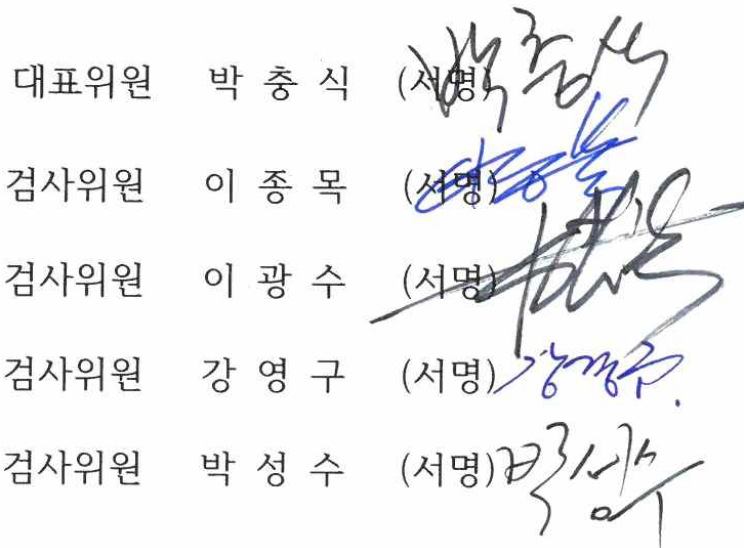 대표위원 박 충 식 (서명) 박충식
검사위원 이 종 목 (서명)
검사위원 이 광 수 (서명)
검사위원 강 영 구 (서명) 강영구
검사위원 박 성 수 (서명) 박성수